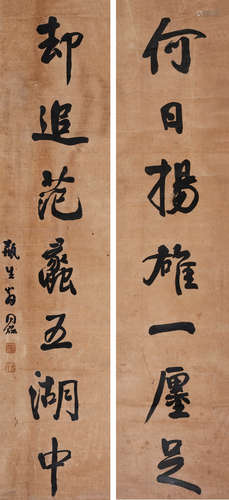 何日揚雄一廛足
却追范蠡五湖中
瓶生翁同龢